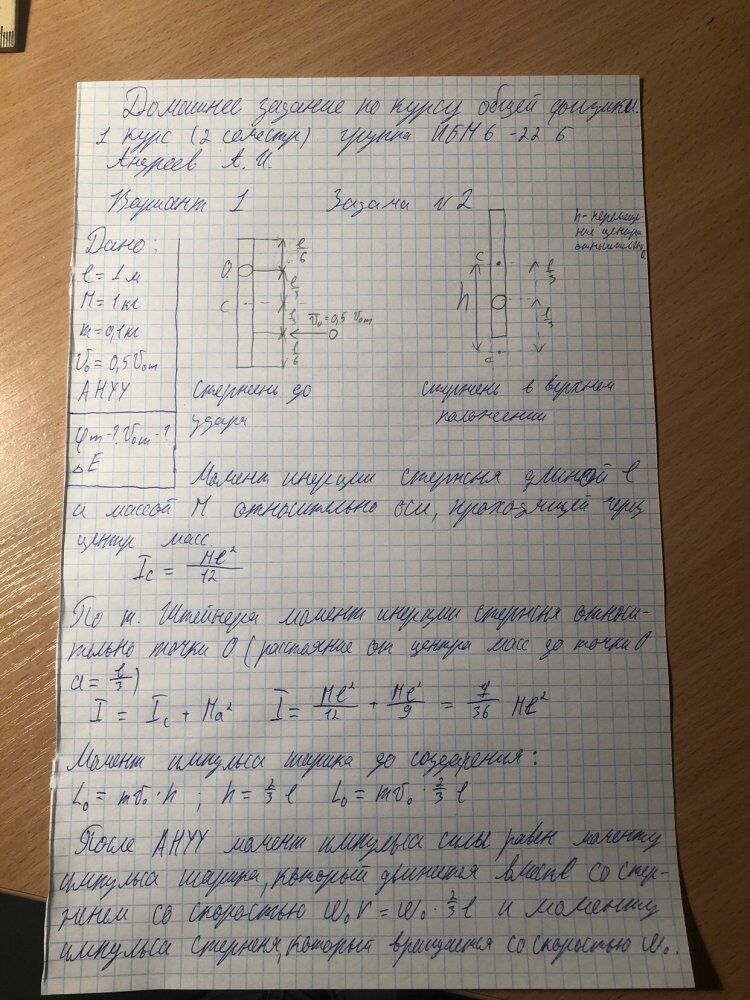 Домашнее задание по курсу общей физики.
1 курс (2 семестр) группа ИБМ6-22Б
Андреев А.И.
Вариант 1 Задача №2
h - перемеще-
ние центра
относительно
O.
Дано:
l = 1 м
M = 1 кг
m = 0,1 кг
V₀ = 0,5 Vₒₘ
АНУУ
φₘ-? Vₒₘ-?
ΔE
O
C
l/6
l/3
l/3
l/6
V̄₀ = 0,5 Vₒₘ
O
C
h
l/3
l/3
C
стержень до
удара
стержень в верхнем
положении
Момент инерции стержня длиной l
и массой M относительно оси, проходящей через
центр масс
I_c = Ml²/12
По т. Штейнера момент инерции стержня относи-
тельно точки O (расстояние от центра масс до точки O
a = l/3)
I = I_c + Ma² I = Ml²/12 + Ml²/9 = 7/36 Ml²
Момент импульса шарика до соударения:
L₀ = mv₀·h ; h = 2/3 l L₀ = mv₀·2/3 l
После АНУУ момент импульса силы равен моменту
импульса шарика, который движется вместе со стер-
жнем со скоростью ω₀r = ω₀·2/3 l и моменту
импульса стержня, который вращается со скоростью ω₀.